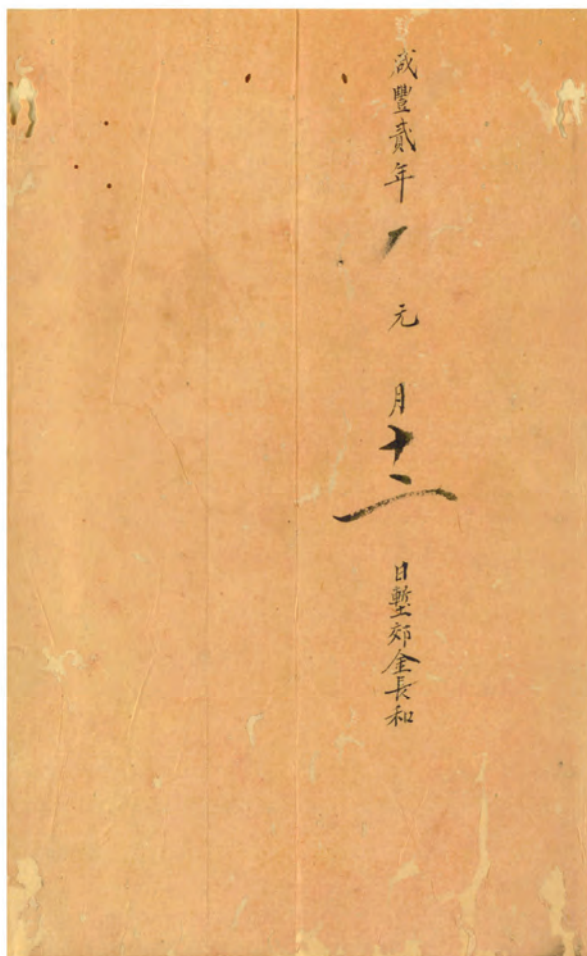 咸豐貳年元月十二日塹郊金長和